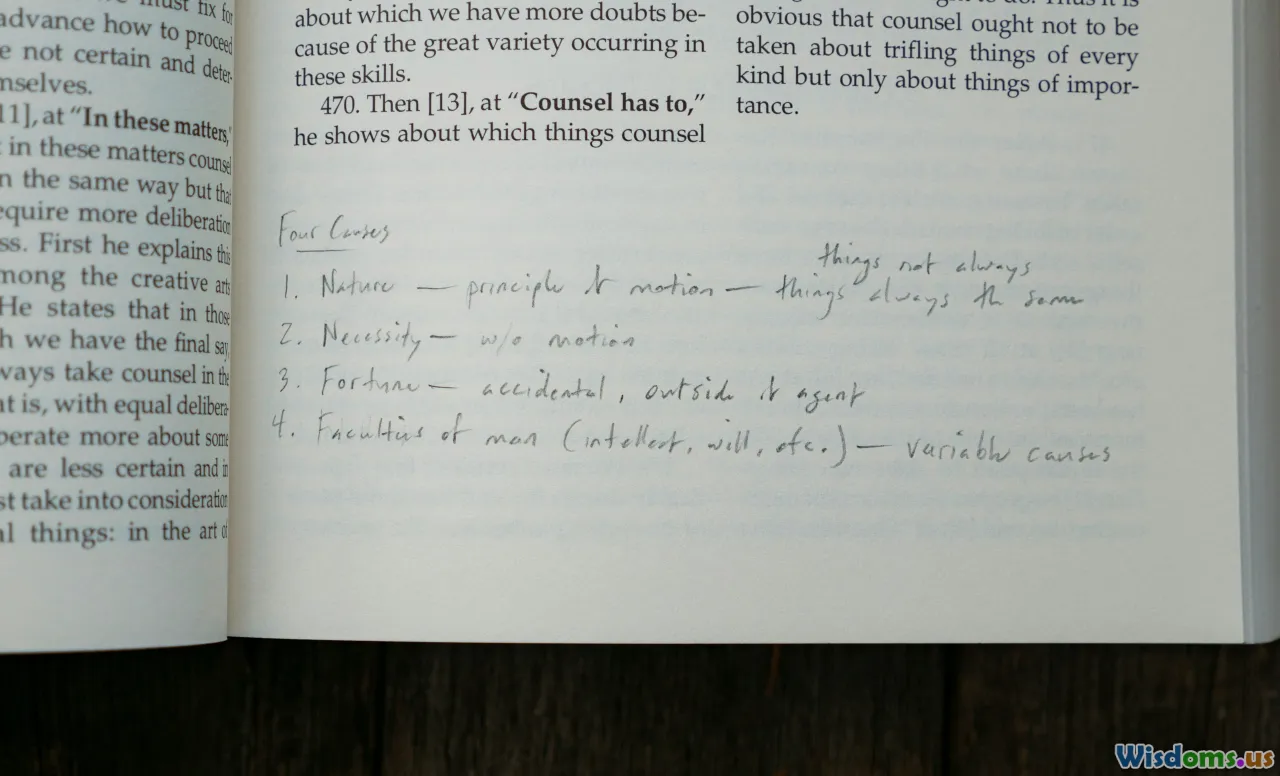 must fix for
advance how to proceed
e not certain and deter-
mselves.
11], at “In these matters,”
in these matters counsel
n the same way but that
equire more deliberation
ss. First he explains this
mong the creative arts
He states that in those
h we have the final say
ways take counsel in the
at is, with equal delibera-
perate more about some
are less certain and in
st take into consideration
al things: in the art of
about which we have more doubts be-
cause of the great variety occurring in
these skills.
470. Then [13], at “Counsel has to,”
he shows about which things counsel
to do. Thus it is
obvious that counsel ought not to be
taken about trifling things of every
kind but only about things of impor-
tance.
Four Causes
things not always
1. Nature — principle of motion — things always the same
2. Necessity — w/o motion
3. Fortune — accidental, outside of agent
4. Faculties of man (intellect, will, etc.) — variable causes
Wisdoms.us